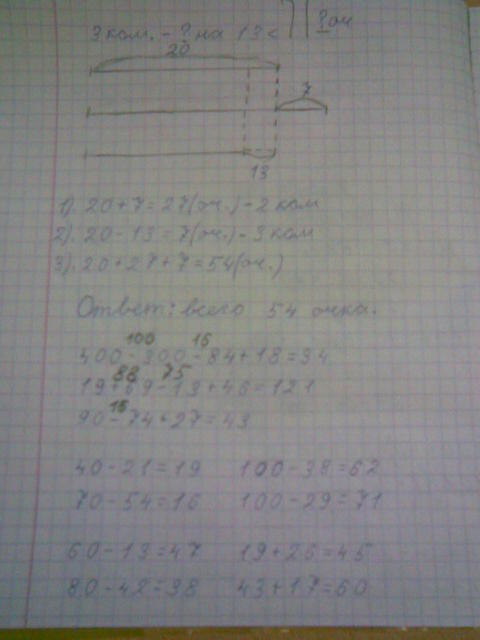 3 ком. - ? на 13 < ? оч
20
7
13
1). 20+7=27(оч.)-2 ком
2). 20-13=7(оч.)-3 ком
3). 20+27+7=54(оч.)
Ответ: всего 54 очка.
100 16
400-300-84+18=34
88 75
19+69-13+46=121
16
90-74+27=43
40-21=19 100-38=62
70-54=16 100-29=71
60-13=47 19+26=45
80-42=38 43+17=60